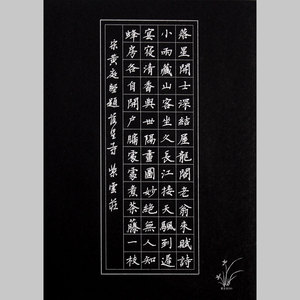 落星開士深結屋龍閣老翁來賦詩
小雨藏山客坐久長江接天颿到遲
宴寢清香與世隔畫圖妙絕無人知
蜂房各自開户牖處處煮茶藤一枝
宋黃庭堅題落星寺 紫雲莊